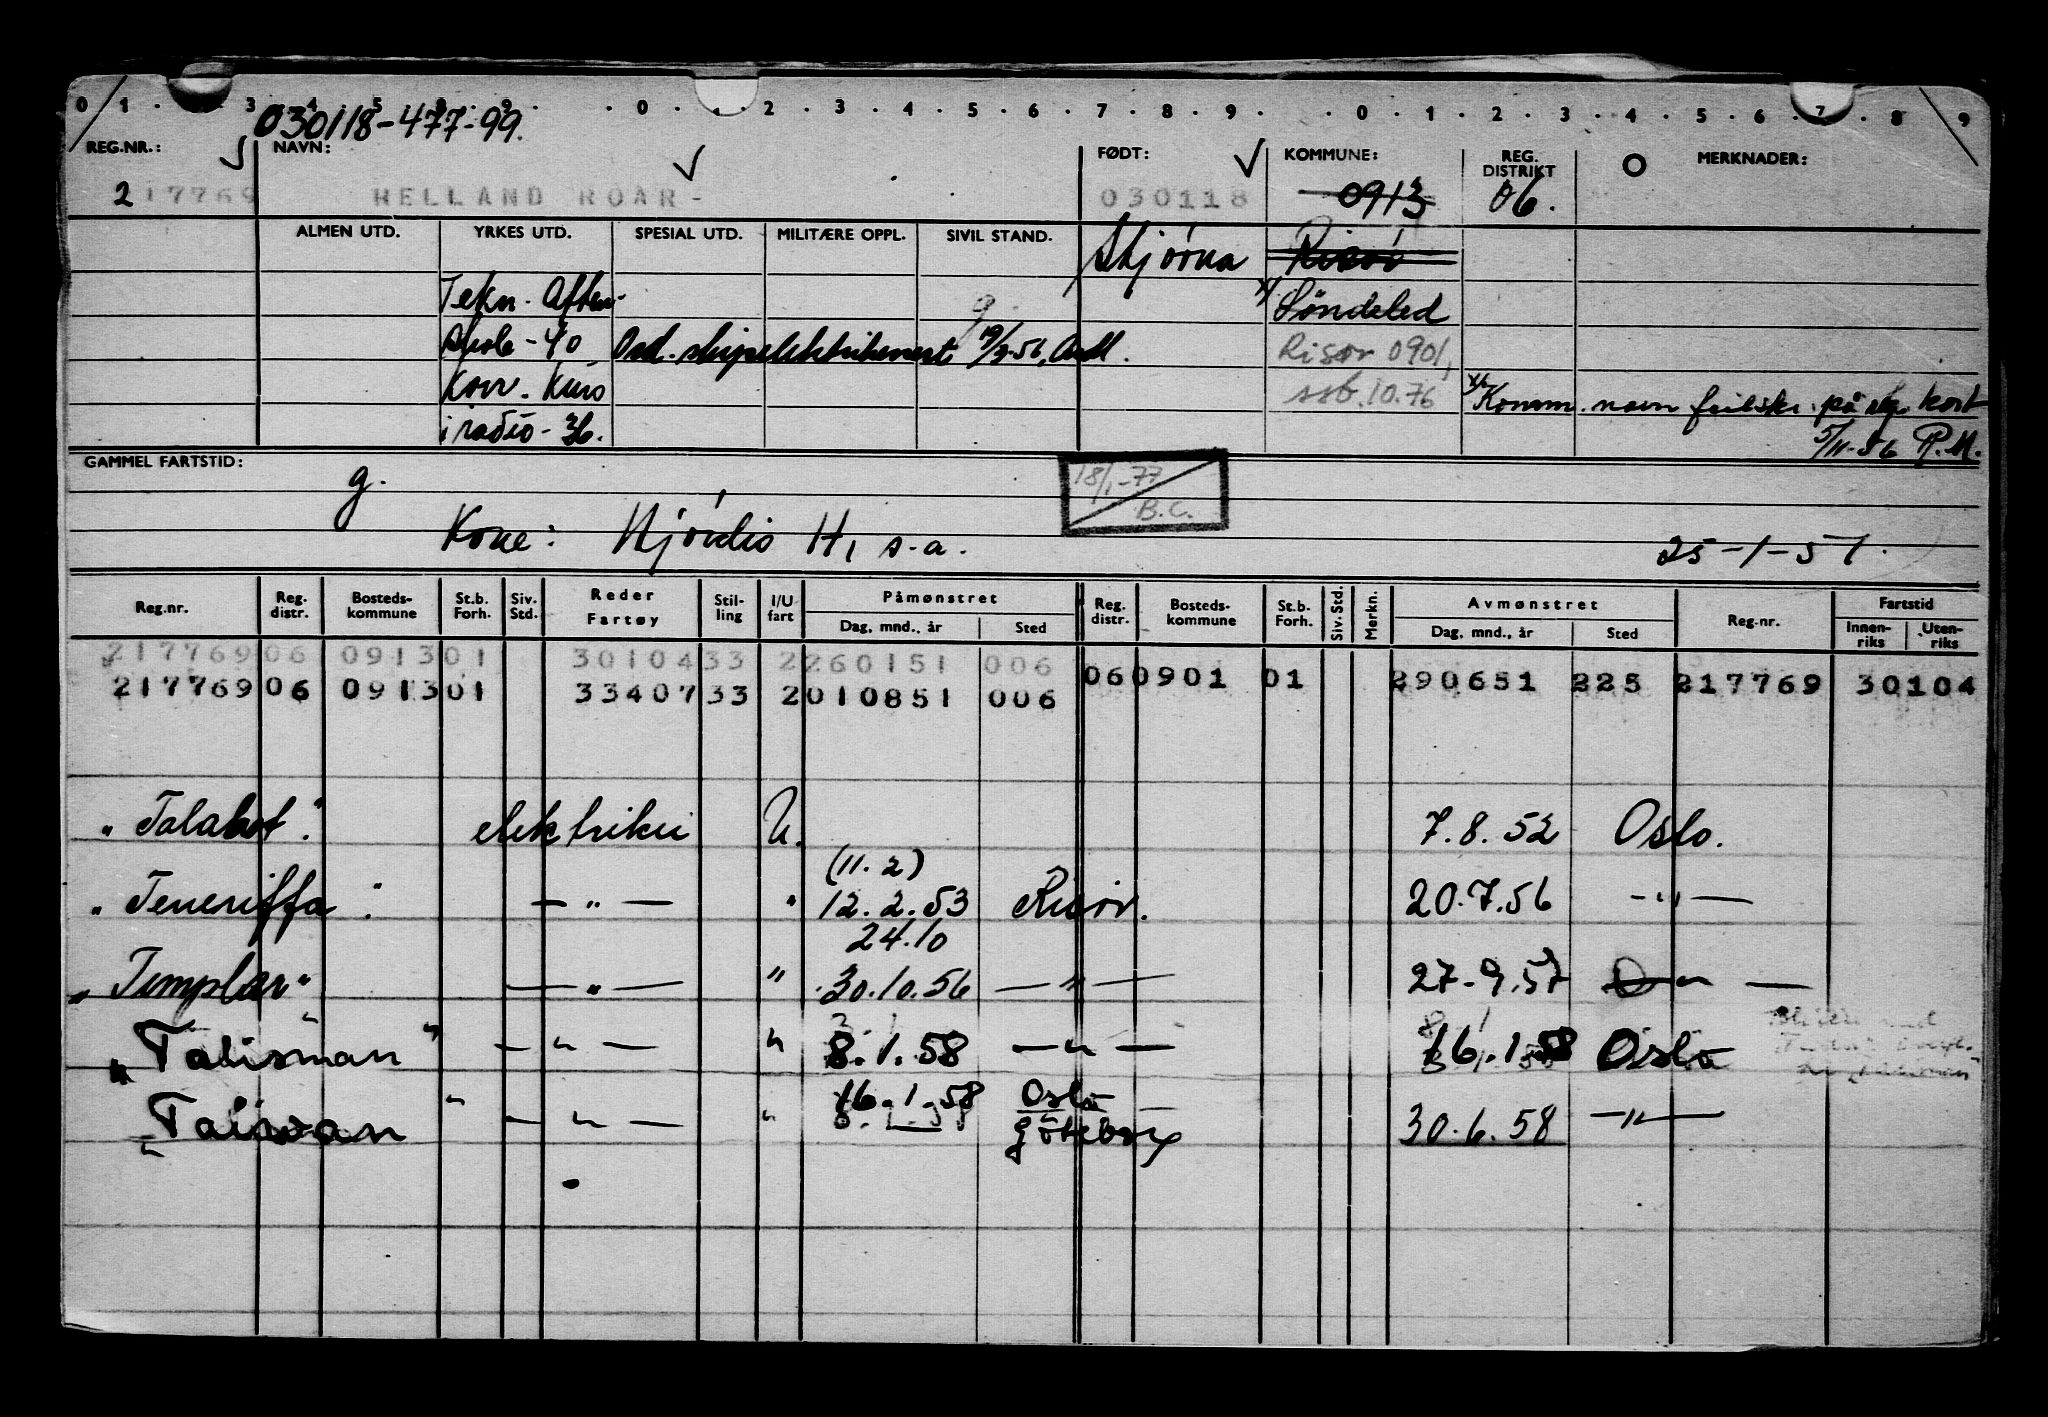 0 1 . . 3 4 5 8 9 . . 0 . . 2 . 3 . 4 . 5 . 6 . 7 . 8 . 9 . . 0 . 1 . 2 . 3 . 4 . 5 . 6 . 7 . 8 . 9
030118-477-99.
REG.NR.: NAVN: FØDT: KOMMUNE: REG. DISTRIKT MERKNADER:
217769 HELLAND ROAR- 030118 0913 06.
ALMEN UTD. YRKES UTD. SPESIAL UTD. MILITÆRE OPPL. SIVIL STAND. Stjørna Risør
Tekn. Aften- g. x/ Søndeled
skole - 40 Ord. skipselektrikersert. 19/3-56, Ardl. Risør 0901,
Korr. kurs ssb. 10.76 x/ Komm. navn på kort
i radio - 36. 5/11-56 R.M.
GAMMEL FARTSTID:
g. 18/1-77
B.C.
Kone: Hjördis H, s.a. 25-1-51.
Reg.nr. Reg. distr. Bosteds-kommune St.b. Forh. Siv. Std. Reder Fartøy Stil-ling I/U fart Påmønstret Dag, mnd., år Sted Reg. distr. Bosteds-kommune St.b. Forh. Siv. Std. Merkn. Avmønstret Dag, mnd., år Sted Reg.nr. Fartstid Innen-riks Uten-riks
217769 06 0913 01 30104 33 2 260151 006
06 0901 01 290651 225 217769 30104
217769 06 0913 01 33407 33 2 010851 006
"Talabot". elektriker U. 7.8.52 Oslo.
(11.2)
"Teneriffa". — " — " 12.2.53 Risør. 20.7.56 — " —
24.10
"Templar" — " — " 30.10.56 — " — 27-9.57 — " —
"Talisman" — " — " 8.1.58 — " — 16.1.58 Oslo
16.1.58 Oslo
"Taiwan" — " — " Göteborg 30.6.58 — " —